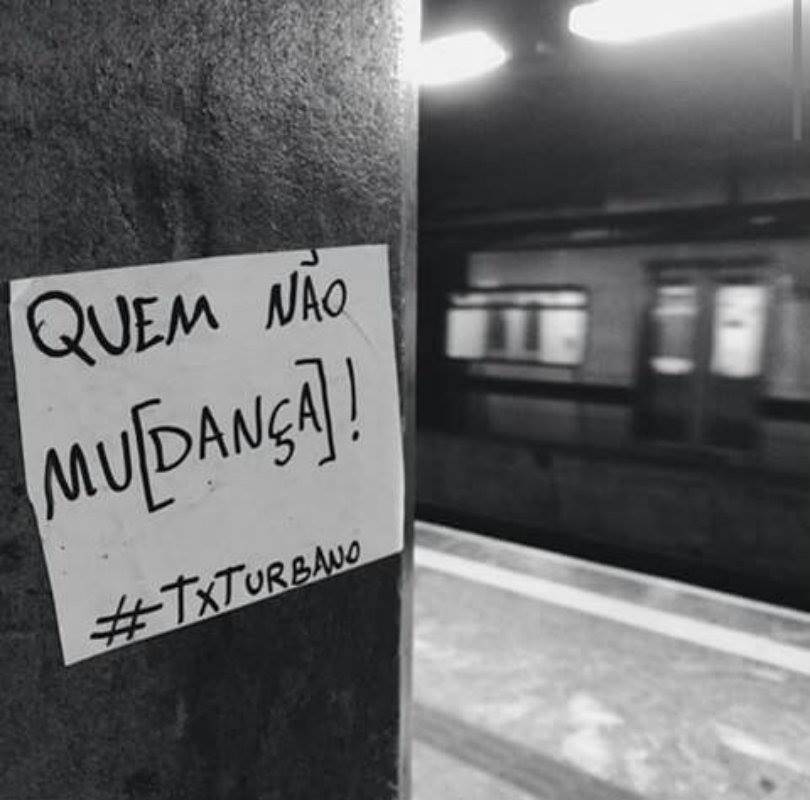 QUEM NÃO
MU[DANÇA]!
#TXTURBANO